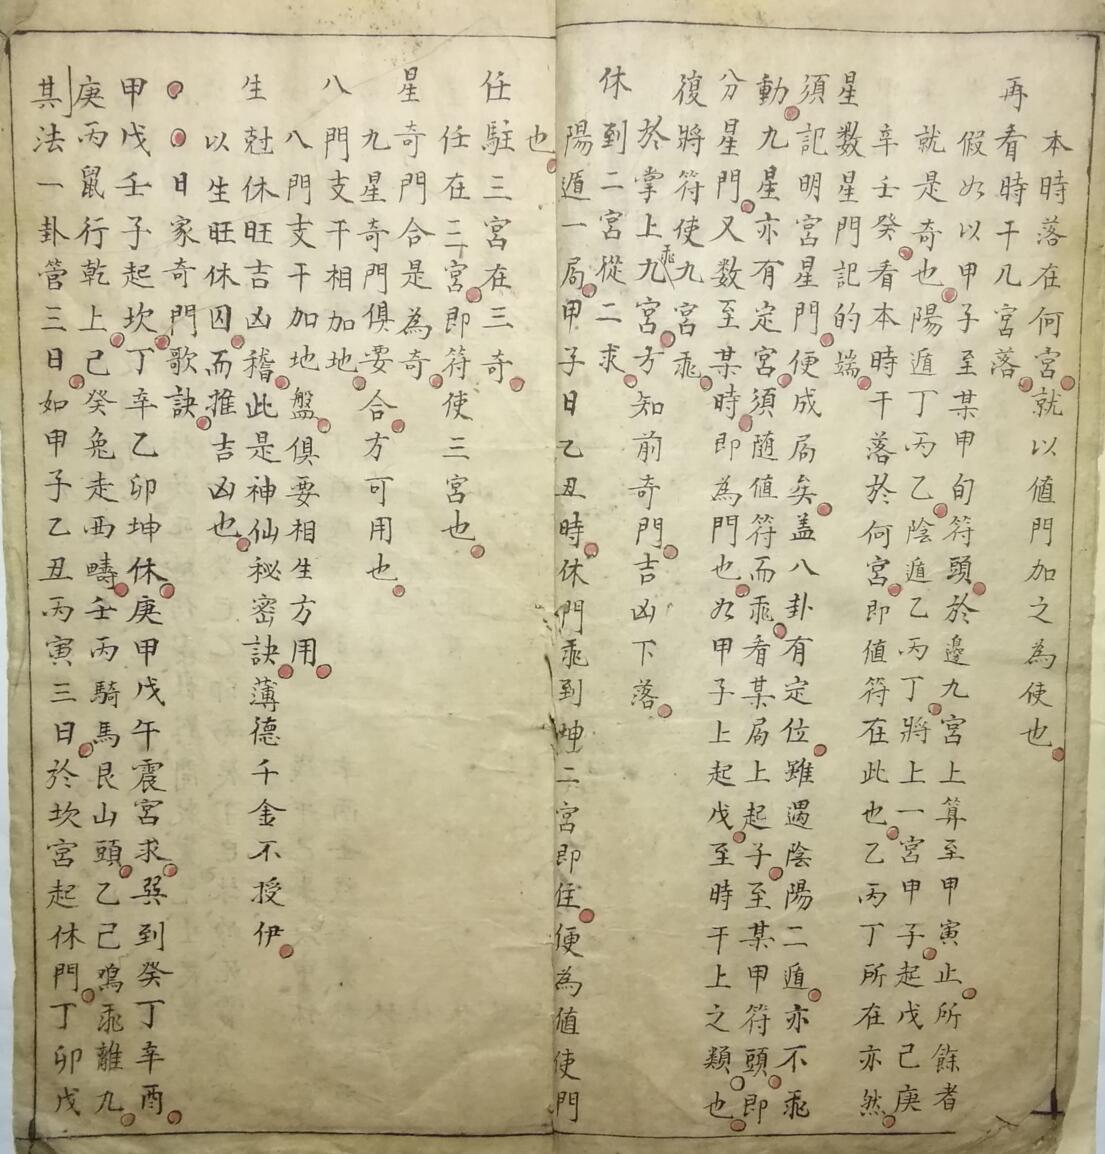 本時落在何宮就以值門加之為使也
再看時干几宮落
假如以甲子至某甲旬符頭於邊九宮上算至甲寅止所餘者
就是奇也陽遁丁丙乙陰遁乙丙丁將上一宮甲子起戊己庚
辛壬癸看本時干落於何宮即值符在此也乙丙丁所在亦然
星数星門記的端
須記明宮星門便成局矣盖八卦有定位雖遇陰陽二遁亦不乖
動九星亦有定宮須随值符而乖看某局上起子至某甲符頭即
分星門又数至某時即為門也如甲子上起戊至時干上之類也
復將符使九宮乖
於掌上乖九宮方知前奇門吉凶下落
休到二宮從二求
陽遁一局甲子日乙丑時休門乖到坤二宮即住便為值使門
也
任駐三宮在三奇
任在三宮即符使三宮也
星奇門合是為奇
九星奇門俱要合方可用也
八門支干相加地
八門支干加地盤俱要相生方用
生尅休旺吉凶稽此是神仙秘密訣薄德千金不授伊
以生旺休囚而推吉凶也
日家奇門歌訣
甲戊壬子起坎丁辛乙卯坤休庚甲戊午震宮求巽到癸丁辛酉
庚丙鼠行乾上己癸兔走西疇壬丙騎馬艮山頭乙己鳴乖離九
其法一卦管三日如甲子乙丑丙寅三日於坎宮起休門丁卯戊